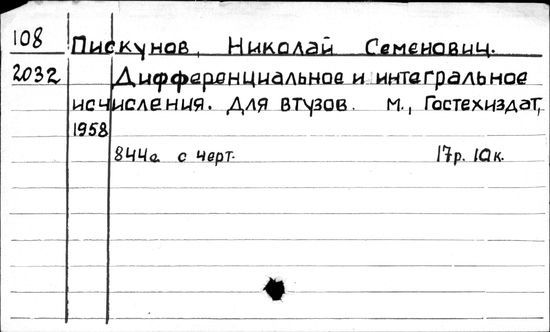 108 Пискунов, Николай Семенович.
2032 Дифференциальное и интегральное
исчисления. Для втузов. М., Гостехиздат,
1958
844с. с черт. 17р. 10к.